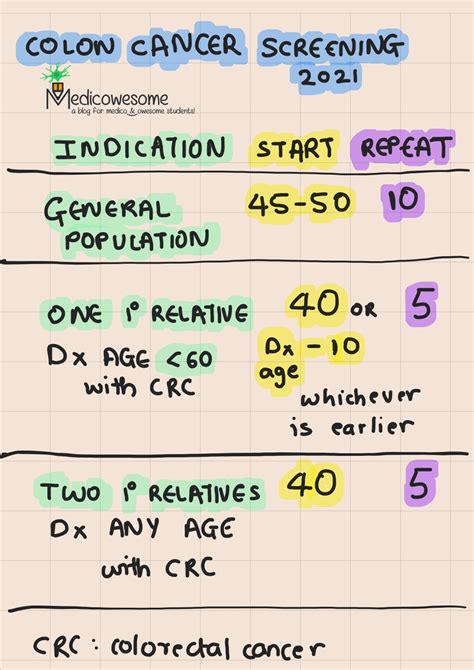 COLON CANCER SCREENING
2021
Medicowesome
a blog for medico & awesome students!
INDICATION START REPEAT
GENERAL POPULATION 45-50 10
ONE 1° RELATIVE 40 OR 5
Dx AGE <60 Dx - 10
with CRC age
whichever
is earlier
TWO 1° RELATIVES 40 5
Dx ANY AGE
with CRC
CRC : colorectal cancer